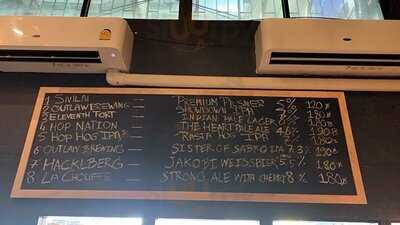 1 SIVILAI — PREMIUM PILSNER 5% 120฿
2 OUTLAW BREWING — 180฿
3 ELEVENTH FORT — INDIAN PALE LAGER
4 HOP NATION — THE HEART PALE ALE 4.6% 190฿
5 HOP HOG IPA — RASTA HOG IPA
6 OUTLAW BREWING — SISTER OF SABOO IPA 7.3% 190฿
7 HACKLBERG — JAKOBI WEISSBIER 5.5% 180฿
8 LA CHOUFFE — STRONG ALE WITH CHERRY 8% 180฿